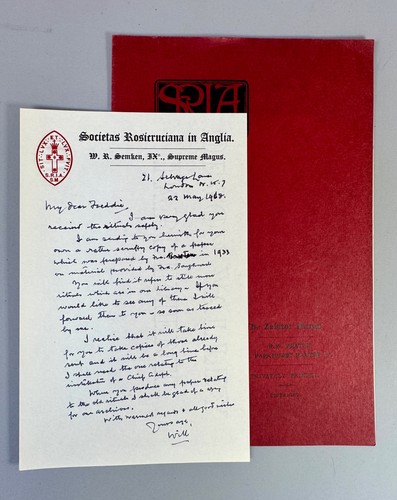 Societas Rosicruciana in Anglia.
W. R. Semken, IX°., Supreme Magus.
SIT LVX ET LVX FVIT
21, Selvage Lane
London N.W.7
22 May, 1968.
My dear Freddie,
I am very glad you
received the rituals safely.
I am sending to you herewith for your
own a rather scruffy copy of a paper
which was prepared by in 1933
on material provided by
You will find it refers to still more
rituals which are in our library – If you
would like to see any of them I will
forward them to you – so soon as traced
by me.
I realise that it will take time
for you to take copies of those already
sent and it will be a long time before
I shall need the one relating to the
institution of a Chief Adept.
When you produce any paper relating
to the old rituals I shall be glad of a copy
for our archives.
With warmest regards & all good wishes
Yours age,
Will
SRIA